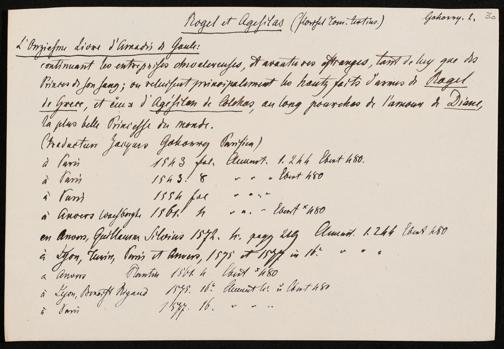 Rogel et Agesilas (Florisel Tom. tertius) Gohorry. 2. 30
L'Onziesme Livre d'Amadis de Gaule:
continuant les entreprises chevalereuses, et aventures estranges, tant de luy que des
Princes de son sang; ou reluisent principalement les hautz faitz d'armes de Rogel
de Grece, et ceux d'Agesilan de Colchos, au long pourchas de l'amour de Diane,
la plus belle Princesse du monde.
(Traduction Jacques Gohorry Parisien)
à Paris 1543 fol. Ebert 480.
à Paris 1543. 8 " " " Ebert 480
à Paris 1554 fol " " "
à Anvers 1561. 4 " " " Ebert " 480
en Anvers, Guillaume Silvius 1572. 4. Ebert 480
à Lyon, Turin, Paris et Anvers, 1575 et 1577 in 16° " " "
à Anvers 1561. 4 Ebert " 480
à Lyon, Benoist Rigaud 1575. 16° Ebert 480
à Paris 1577. 16. " " "